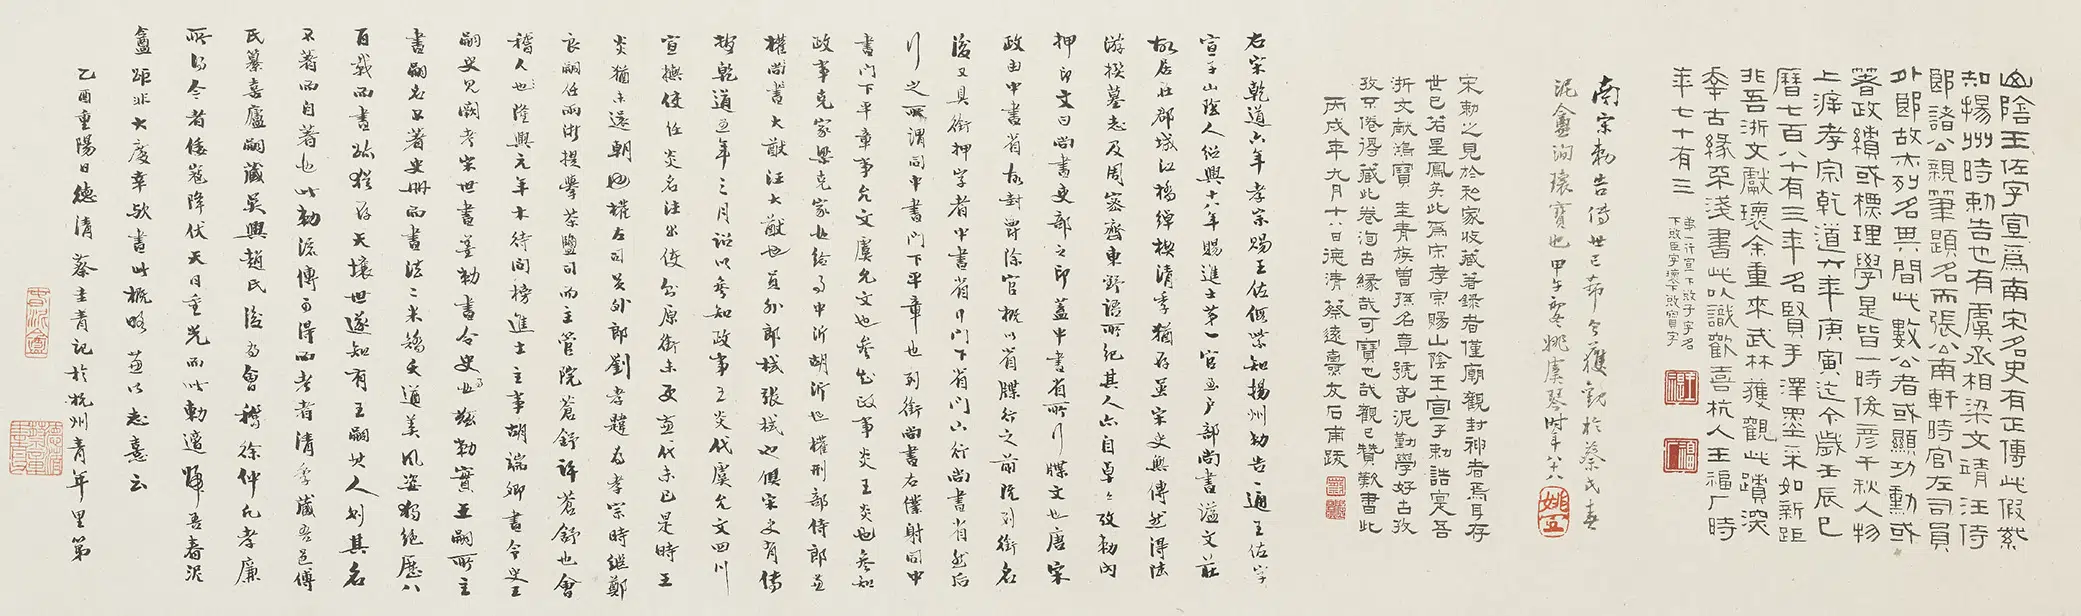 山陰王佐字宣爲南宋名史有正傳此假紫
知揚州時勅告也有虞丞相梁文靖汪侍
郎諸公親筆題名而張公南軒時官左司員
外郎故亦列名其間此數公者或顯功勳或
著政績或標理學是皆一時俊彦千秋人物
上溯孝宗乾道六年庚寅迄今歲壬辰已
曆七百八十有三年名賢手澤墨采如新詎
非吾浙文獻瓌余重來武林獲觀此蹟深
幸古緣不淺書此以識歡喜杭人王禔厂時
年七十有三
第一行宣下敓子字名
下敓臣字瓌下敓寶字
南宋勅告傳世已希今獲觀於蔡氏春
泥盦洵瓌寶也甲午冬姚虞琴時年八十八
宋勅之見於私家收藏著錄者僅廟觀封神者焉耳存
世已若星鳳矣此爲宋孝宗賜山陰王宣子勅誥寔吾
浙文獻鴻寶圭青族曾孫名章號春泥勤學好古孜
孜不倦得藏此卷洵古緣哉可寶也哉觀已贊歎書此
丙戌年九月十六日德清蔡遠熹友石甫跋
右宋乾道六年孝宗賜王佐假紫知揚州勅告一通王佐字
宣子山陰人紹興十八年賜進士第一官至户部尚書謚文莊
故居在郡城江橋綽楔清季猶存並宋史無傳然得陸
游撰墓志及周密齊東野語所紀其人亦自卓卓攷勅內
押印文曰尚書吏部之印蓋中書省所行牒文也唐宋
政由中書省故封爵除官概以省牒行之前既列銜名
後又具銜押字者中書省門下省門山行尚書省然后
行之所謂同中書門下平章也列銜尚書右僕射同中
書門下平章事允文虞允文也參知政事炎王炎也參知
政事克家梁克家也給事中沂胡沂也權刑部侍郎兼
權尚書大猷汪大猷也員外郎栻張栻也俱宋史有傳
按乾道五年三月詔以參知政事王炎代虞允文四川
宣撫使任炎名注出使台原銜未更蓋代未已是時王
炎猶未還朝也權左司員外郎劉孝韙為孝宗時繼鄭
良嗣任兩浙提舉茶鹽司而主管院蒼舒許蒼舒也會
稽人也隆興元年木待問榜進士主事胡端卿書令史王
嗣史冗闕考宋世書差勅書令史也兹勅實王嗣所主
書嗣名不著史冊而書法二米矯矢遒美風姿獨絕歷八
百載而書跡猶存天壤世遂知有王嗣其人划其名
不著而自著也此勅流傳可得而考者清季藏吾邑傅
氏纂喜廬嗣藏吳興趙氏後為會稽徐仲凡孝廉
所得今者倭寇降伏天日重光而此勅適歸吾春泥
盦距非大慶幸歟書此概略並以志憙云
乙酉重陽日德清蔡圭青記於杭州青年里第